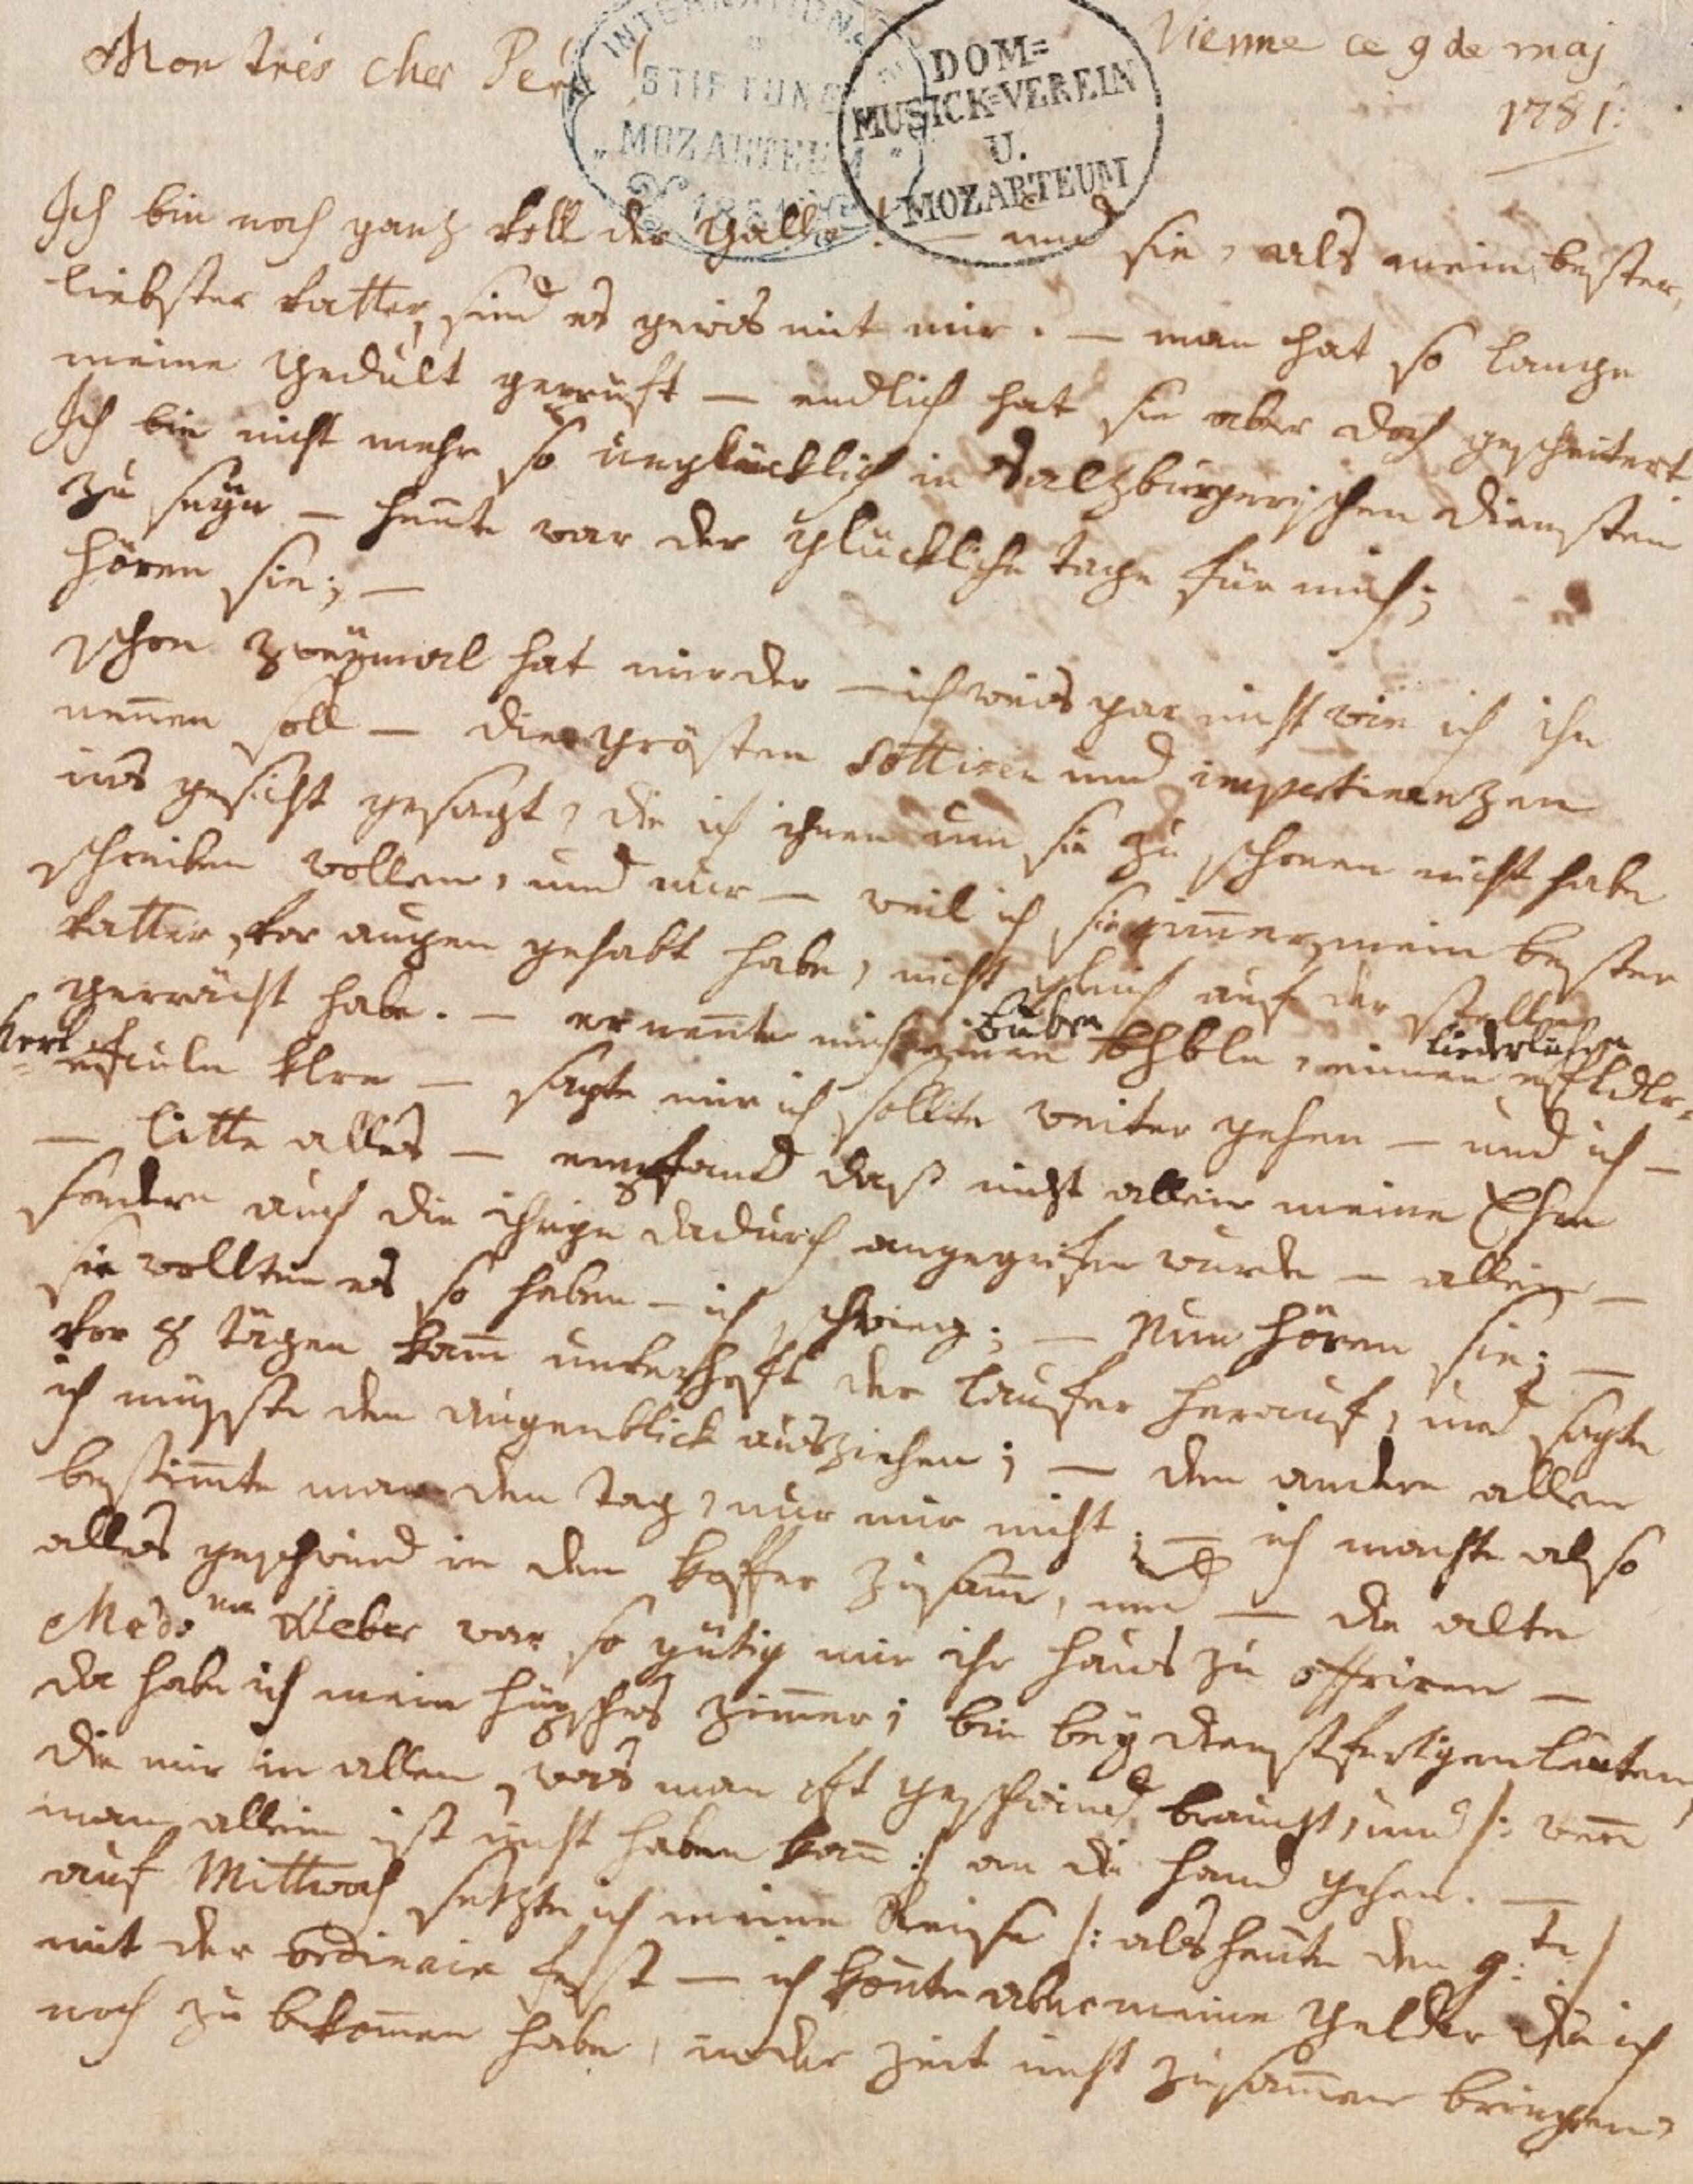 Mon trés cher Pére!
Vienne ce 9 de maj
1781.
INTERNATION.
STIFTUNG
"MOZARTEUM"
DOM=
MUSICK=VEREIN
U.
MOZARTEUM
Ich bin noch ganz voll der Galle! — und sie, als mein bester,
liebster vatter, sind es gewis mit mir. — man hat so lange
meine Gedult geprüft — endlich hat sie aber doch gescheitert.
Ich bin nicht mehr so unglücklich in Salzburgerischen diensten
zu seyn — heute war der glückliche tage für mich;
hören sie; —
schon zweÿmal hat mir der — ich weis gar nicht wie ich ihn
nennen soll — die grösten sottisen und impertinenzen
ins gesicht gesagt, die ich ihnen um sie zu schonen nicht habe
schreiben wollen, und nur — weil ich sie immer, mein bester
vatter, vor augen gehabt habe, nicht gleich auf der stelle
gerrächt habe. — er nennte mich einen bhbln, einen
Buben
liederlichen
Kerl
— sagte mir ich sollte weiter gehen — und ich —
— litte alles — empfand daß nicht allein meine Ehre
sondern auch die ihrige dadurch angegriffen wurde — allein —
sie wollten es so haben — ich schwieg; — Nun hören sie; —
vor 8 tägen kamm unverhoft der laufer herauf, und sagte
ich müsste den augenblick ausziehen; — den andern allen
bestimmte man den tag, nur mir nicht; — ich machte also
alles geschwind in den koffer zusamm, und — die alte
Mad:me Weber war so gütig mir ihr haus zu offriren —
da habe ich mein hüpsches zimmer; bin beÿ dienstfertigen leuten,
die mir in allem, was man oft geschwind braucht, und |: wenn
man allein ist nicht haben kann :| an die hand gehen. —
auf Mittwoch setzte ich meine Reise |: als heute den 9:te :|
mit der ordinaire fest — ich konnte aber meine gelder die ich
noch zu bekommen habe, in der zeit nicht zusammen bringen,